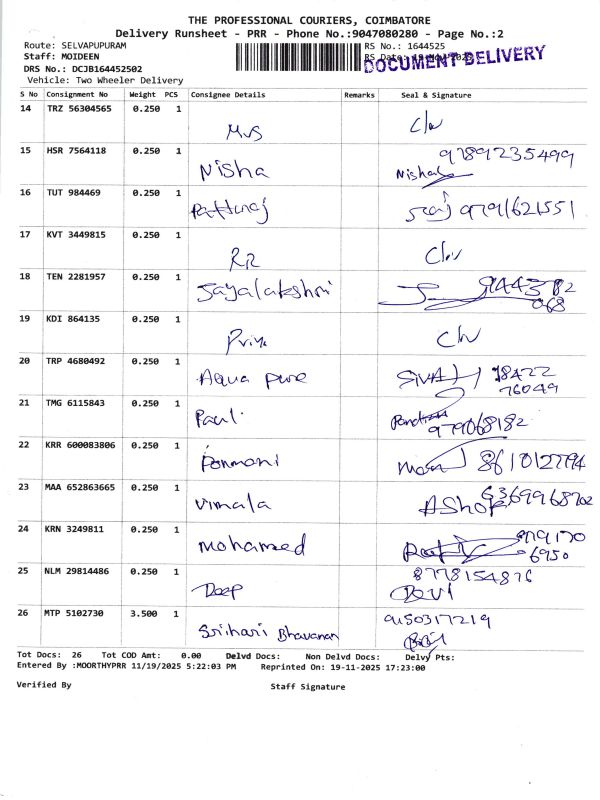 THE PROFESSIONAL COURIERS, COIMBATORE
Delivery Runsheet - PRR - Phone No.:9047080280 - Page No.:2
Route: SELVAPUPURAM
RS No.: 1644525
Staff: MOIDEEN
DOCUMENT DELIVERY
DRS No.: DCJB164452502
Vehicle: Two Wheeler Delivery
S No Consignment No Weight PCS Consignee Details Remarks Seal & Signature
14 TRZ 56304565 0.250 1
Mvs
15 HSR 7564118 0.250 1 9789235499
Nisha Nisha
16 TUT 984469 0.250 1
Patturaj 9791621551
17 KVT 3449815 0.250 1
RR
18 TEN 2281957 0.250 1
Jayalakshmi
19 KDI 864135 0.250 1
Priya
20 TRP 4680492 0.250 1
Aqua pure SIVA 98422
76049
21 TMG 6115843 0.250 1
Paul
979068182
22 KRR 600083806 0.250 1
Ponmani 8610127794
23 MAA 652863665 0.250 1
Vimala AShok 6369968702
24 KRN 3249811 0.250 1
Mohameed 6950
25 NLM 29814486 0.250 1 8778154876
Deep Devi
26 MTP 5102730 3.500 1 9150317219
Srihari Bhavanam
Tot Docs: 26 Tot COD Amt: 0.00 Delvd Docs: Non Delvd Docs: Delvy Pts:
Entered By :MOORTHYPRR 11/19/2025 5:22:03 PM Reprinted On: 19-11-2025 17:23:00
Verified By Staff Signature